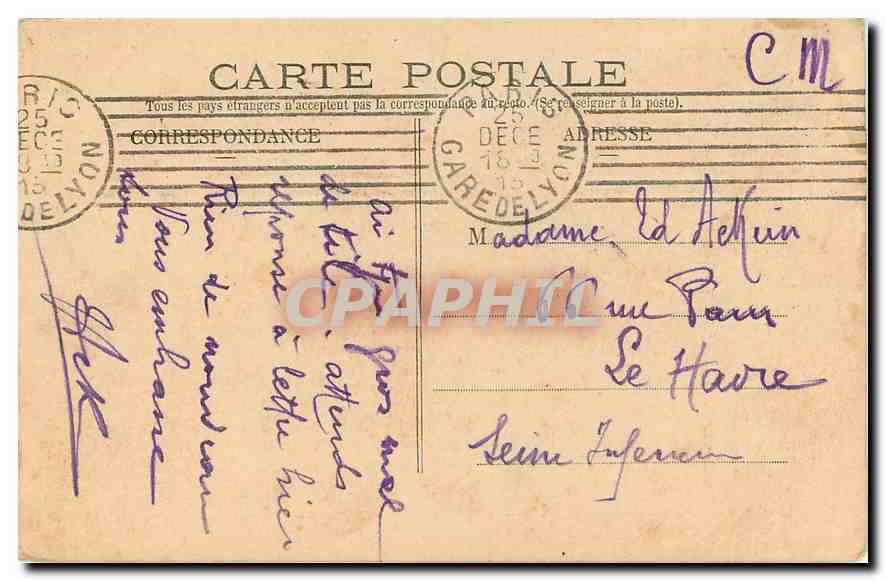 C M
CARTE POSTALE
Tous les pays étrangers n'acceptent pas la correspondance au recto. (Se renseigner à la poste).
CORRESPONDANCE
ADRESSE
PARIS
25
DECE
18
15
GARE DE LYON
RIS
25
ECE
15
DE LYON
ai gros mal
de tête, attends
réponse à lettre hier
Rien de nouveau
Vous embrasse
tous
Madame Ed
66 rue
Le Havre
Seine Inferieure
CPAPHIL